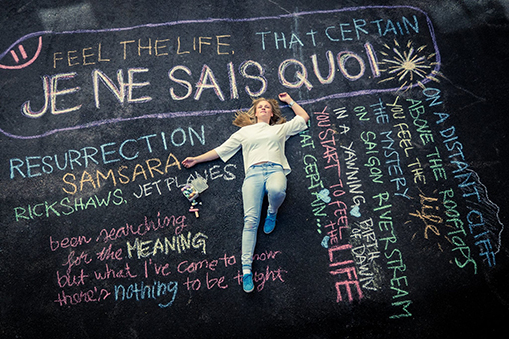 FEEL THE LIFE. THAT CERTAIN
JE NE SAIS QUOI
RESURRECTION
SAMSARA
RICKSHAWS, JETPLANES,
been searching
for the MEANING
but what I've come to know
there's nothing to be
ON A DISTANT CLIFF
ABOVE THE ROOFTOPS
YOU FEEL the Life
THE MYSTERY
ON SAIGON RIVERSTREAM
IN A YAWNING BIRTH OF DAWN
YOU START TO FEEL THE LIFE
THAT CERTAIN...